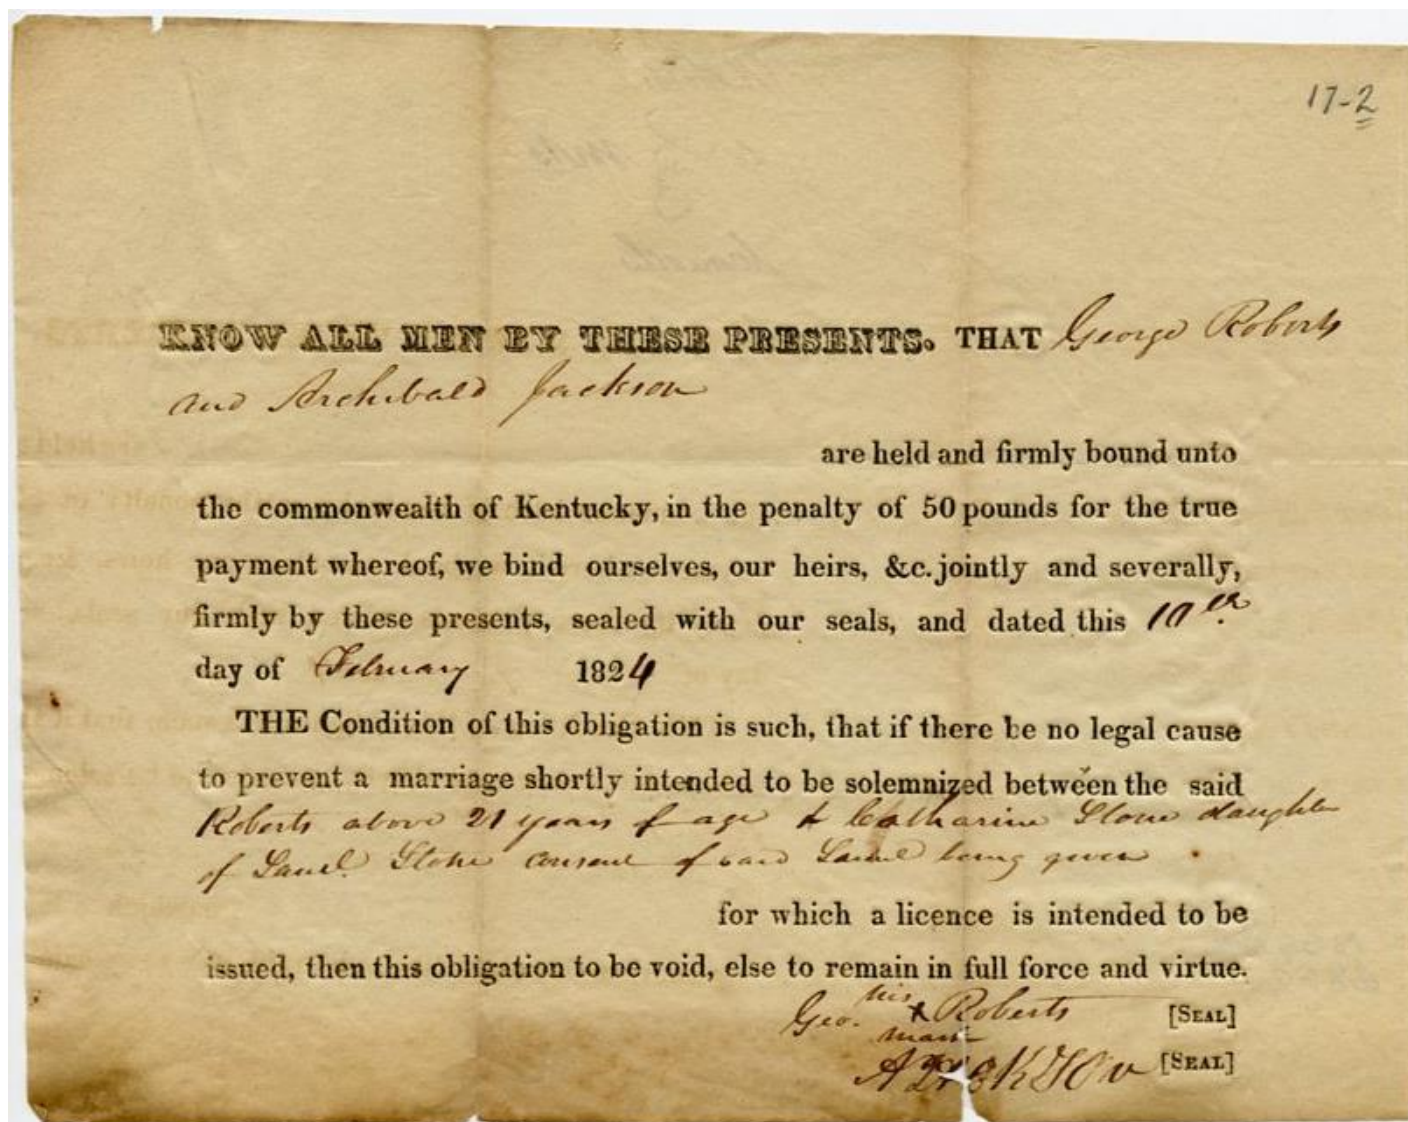 17-2
KNOW ALL MEN BY THESE PRESENTS. THAT George Roberts
and Archibald Jackson
are held and firmly bound unto
the commonwealth of Kentucky, in the penalty of 50 pounds for the true
payment whereof, we bind ourselves, our heirs, &c. jointly and severally,
firmly by these presents, sealed with our seals, and dated this 10th
day of February 1824
THE Condition of this obligation is such, that if there be no legal cause
to prevent a marriage shortly intended to be solemnized between the said
Roberts above 21 years of age & Catharine Stone daughter
of Saml. Stone consent of said Saml being given
for which a licence is intended to be
issued, then this obligation to be void, else to remain in full force and virtue.
his
Geo. x Roberts [SEAL]
mark
[SEAL]